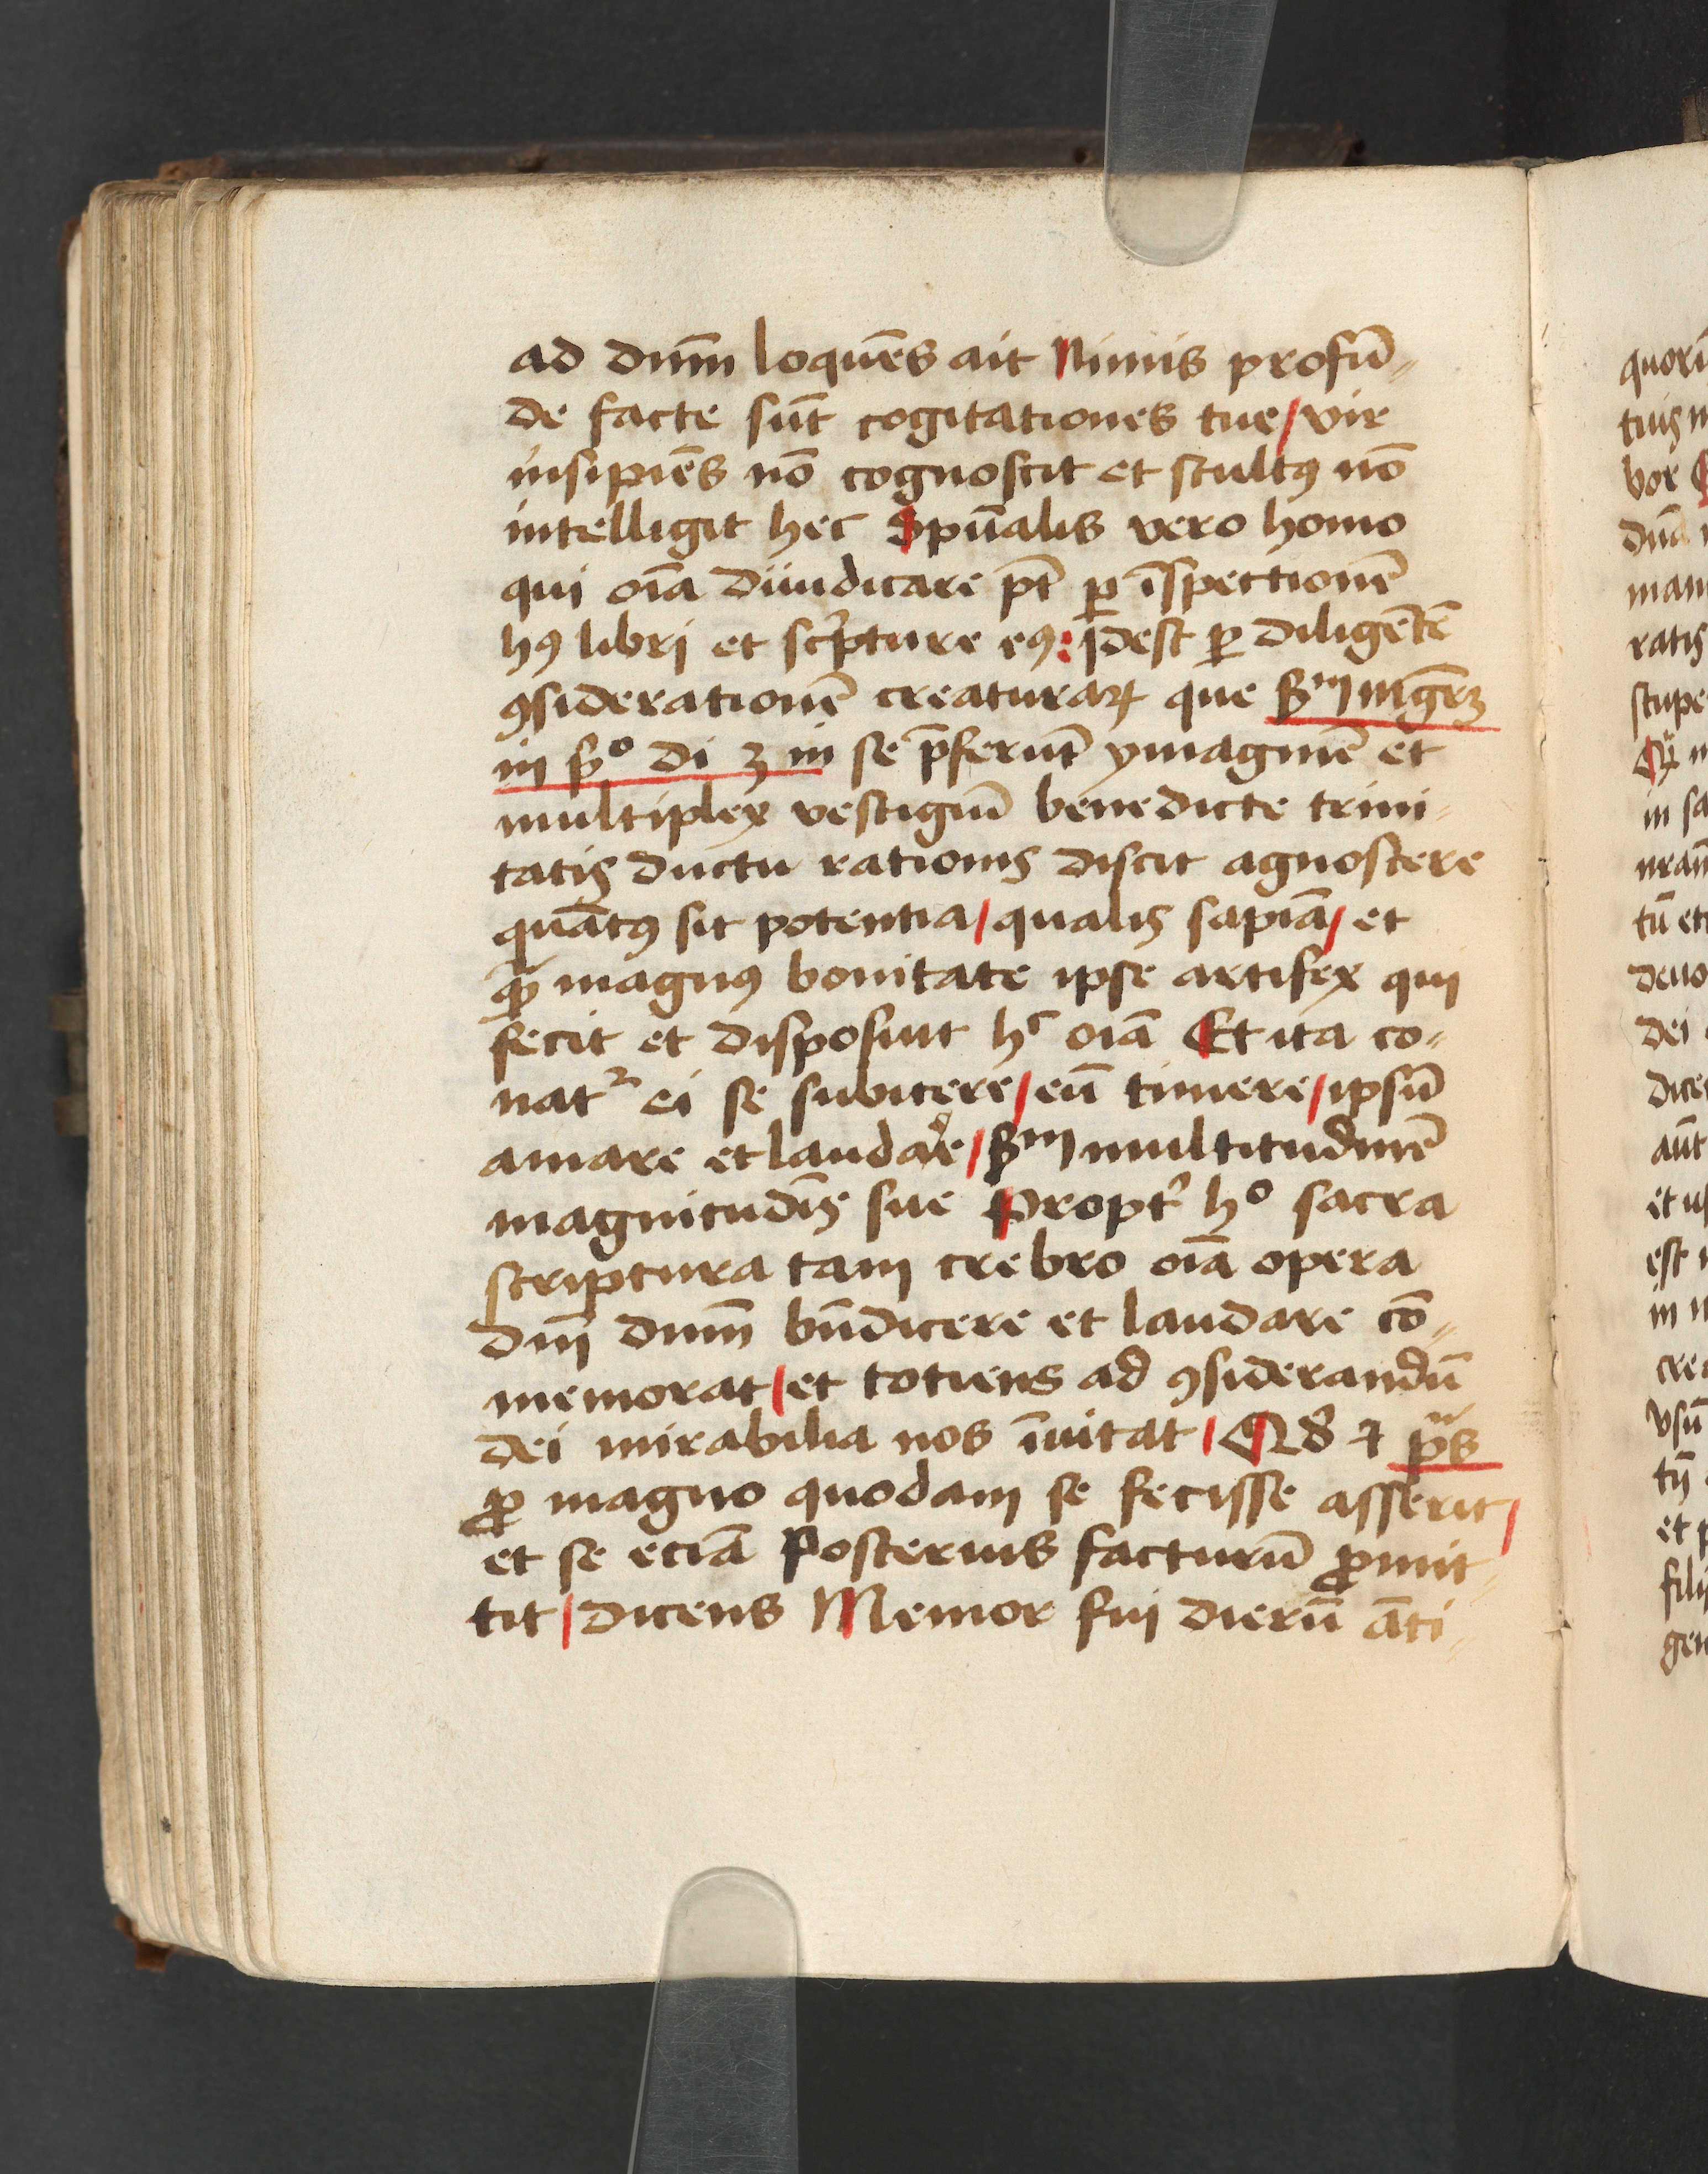 ad dn̄m loquēs ait Nimis profū-
de facte sūt cogitationes tue / vir
insipiēs nō cognoscit et stultꝯ nō
intelligit hec Spūalis vero homo
qui oīa diiudicare pt̄ ꝑ īspectionē
hꝯ libri et scͥpture eꝯ : idest ꝑ diligētē
ꝯsiderationē creaturaꝝ que ẜm mgr̄m
in ẜo di 3 in se p̄ferūt ymaginē et
multiplex vestigiū benedicte trini-
tatis ductu rationis discit agnoscere
quātꝯ sit potentia / qualis sapiā / et
qͣꝫ magnꝯ bonitate ipse artifex qui
fecit et disposuit hͨ oīa Et ita co-
nat᷑ ei se subicere / eū timere / ipsū
amare et laudare / ẜm multitudinē
magnitudīs sue Propt̉ hͦ sacra
scriptura tam crebro oīa opera
dnī dnm̄ bn̄dicere et laudare cō-
memorat / et totiens ad ꝯsiderandū
dei mirabilia nos īuitat / Qd̉ ⁊ pͫs
ꝓ magno quodam se fecisse asserit /
et se eciā Posterius facturū ꝓmit-
tit / dicens Memor fui dierū āti-
quorū
tuis
vor
ratis
in sa
dei
est
filij